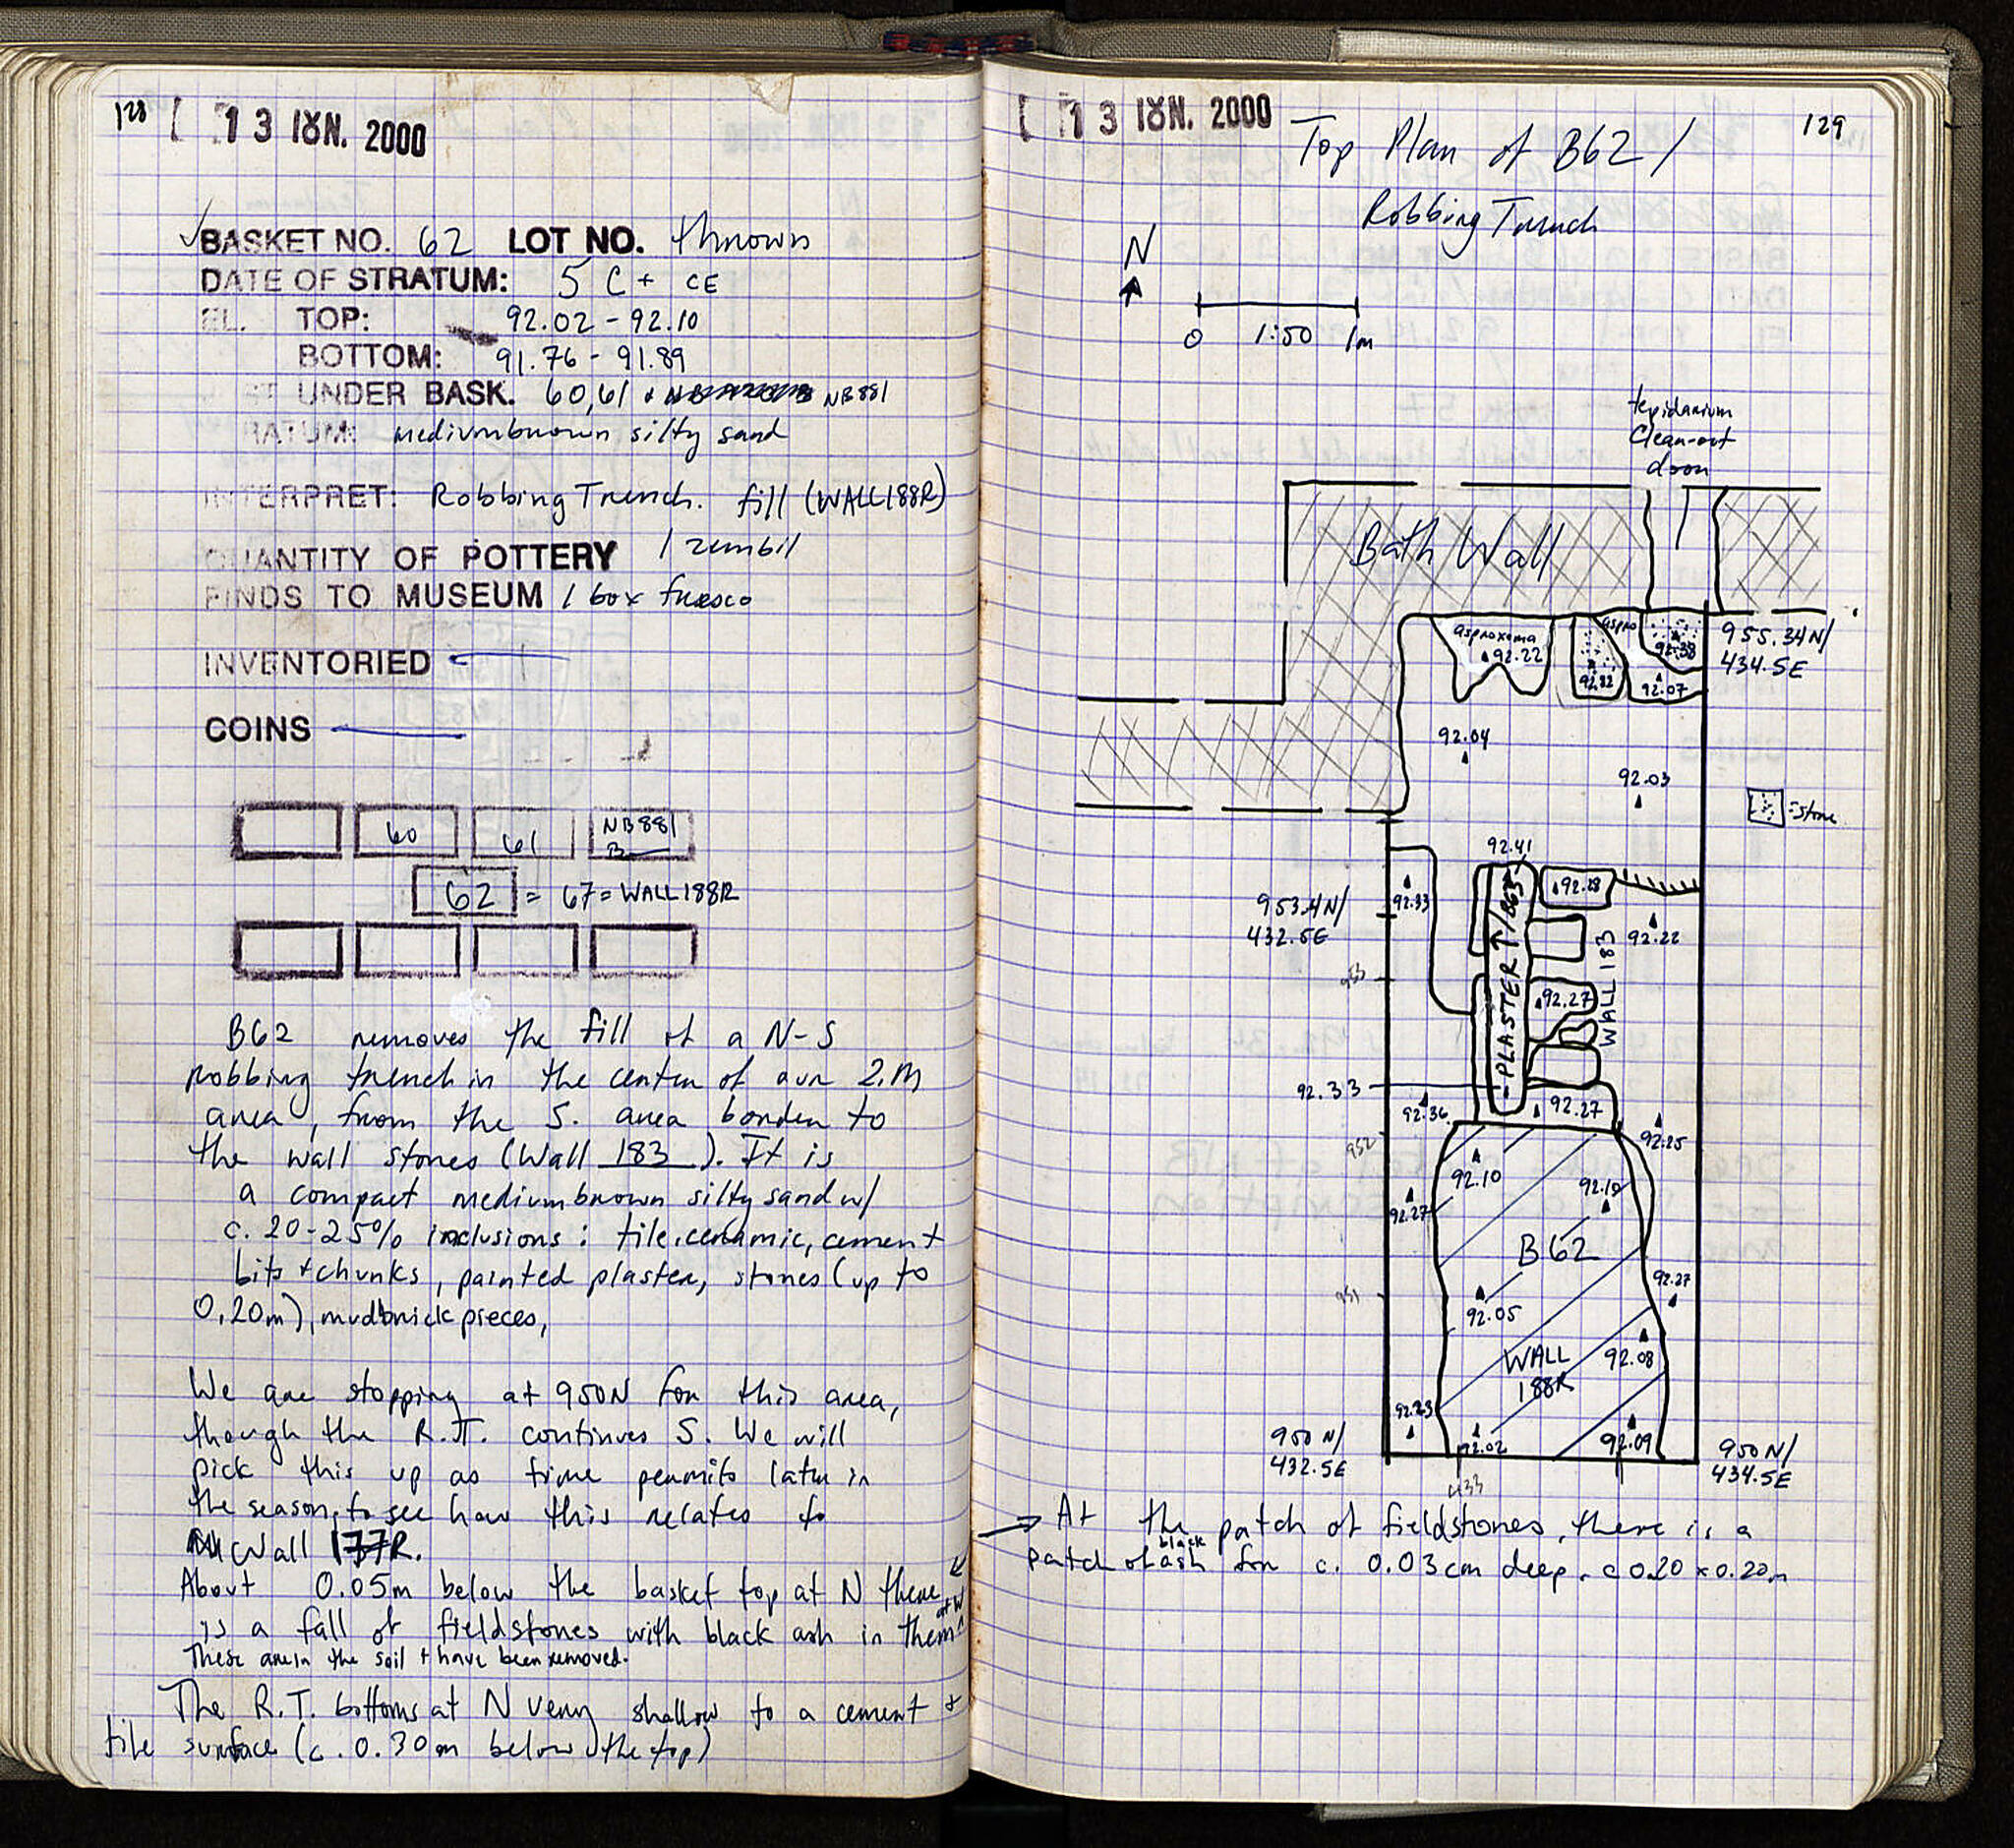 128
13 ΙΟΥΝ. 2000
BASKET NO. 62 LOT NO. thrown
DATE OF STRATUM: 5 C + CE
EL. TOP: 92.02 - 92.10
BOTTOM: 91.76 - 91.89
UNDER BASK. 60, 61 + NB881
RATUM: medium brown silty sand
INTERPRET: Robbing Trench. fill (WALL 188R)
QUANTITY OF POTTERY 1 zembil
FINDS TO MUSEUM 1 box fresco
INVENTORIED
COINS
60 61 NB881 B
62 = 67 = WALL 188R
B62 removes the fill of a N-S
robbing trench in the center of our 2.m
area, from the S. area border to
the wall stones (Wall 183). It is
a compact medium brown silty sand w/
c. 20-25% inclusions: tile, ceramic, cement
bits + chunks, painted plaster, stones (up to
0.20m), mudbrick pieces,
We are stopping at 950N for this area,
though the R.T. continues S. We will
pick this up as time permits later in
the season, to see how this relates to
Wall 177R.
About 0.05m below the basket top at N there
is a fall of fieldstones with black ash in them at W
These are in the soil + have been removed.
The R.T. bottoms at N very shallow to a cement +
tile surface (c. 0.30m below the top)
13 ΙΟΥΝ. 2000
129
Top Plan of B62 /
Robbing Trench
N
0 1:50 1m
tepidarium
Clean-out
door
Bath Wall
asproxoma
92.22
aspro
92.32
92.38
92.07
955.34N/
434.5E
92.04
92.03
= stone
92.41
92.33
92.28
953.4N/
432.5E
92.22
PLASTER ↑/B63
WALL 183
953
92.27
92.33
92.36
92.27
92.25
952
92.10
92.27
92.10
B62
951
92.05
92.27
WALL
188R
92.08
92.23
92.02
92.09
950 N/
432.5E
950 N/
434.5E
433
→ At the patch of fieldstones, there is a
patch of black ash for c. 0.03cm deep. c 0.20 x 0.20m